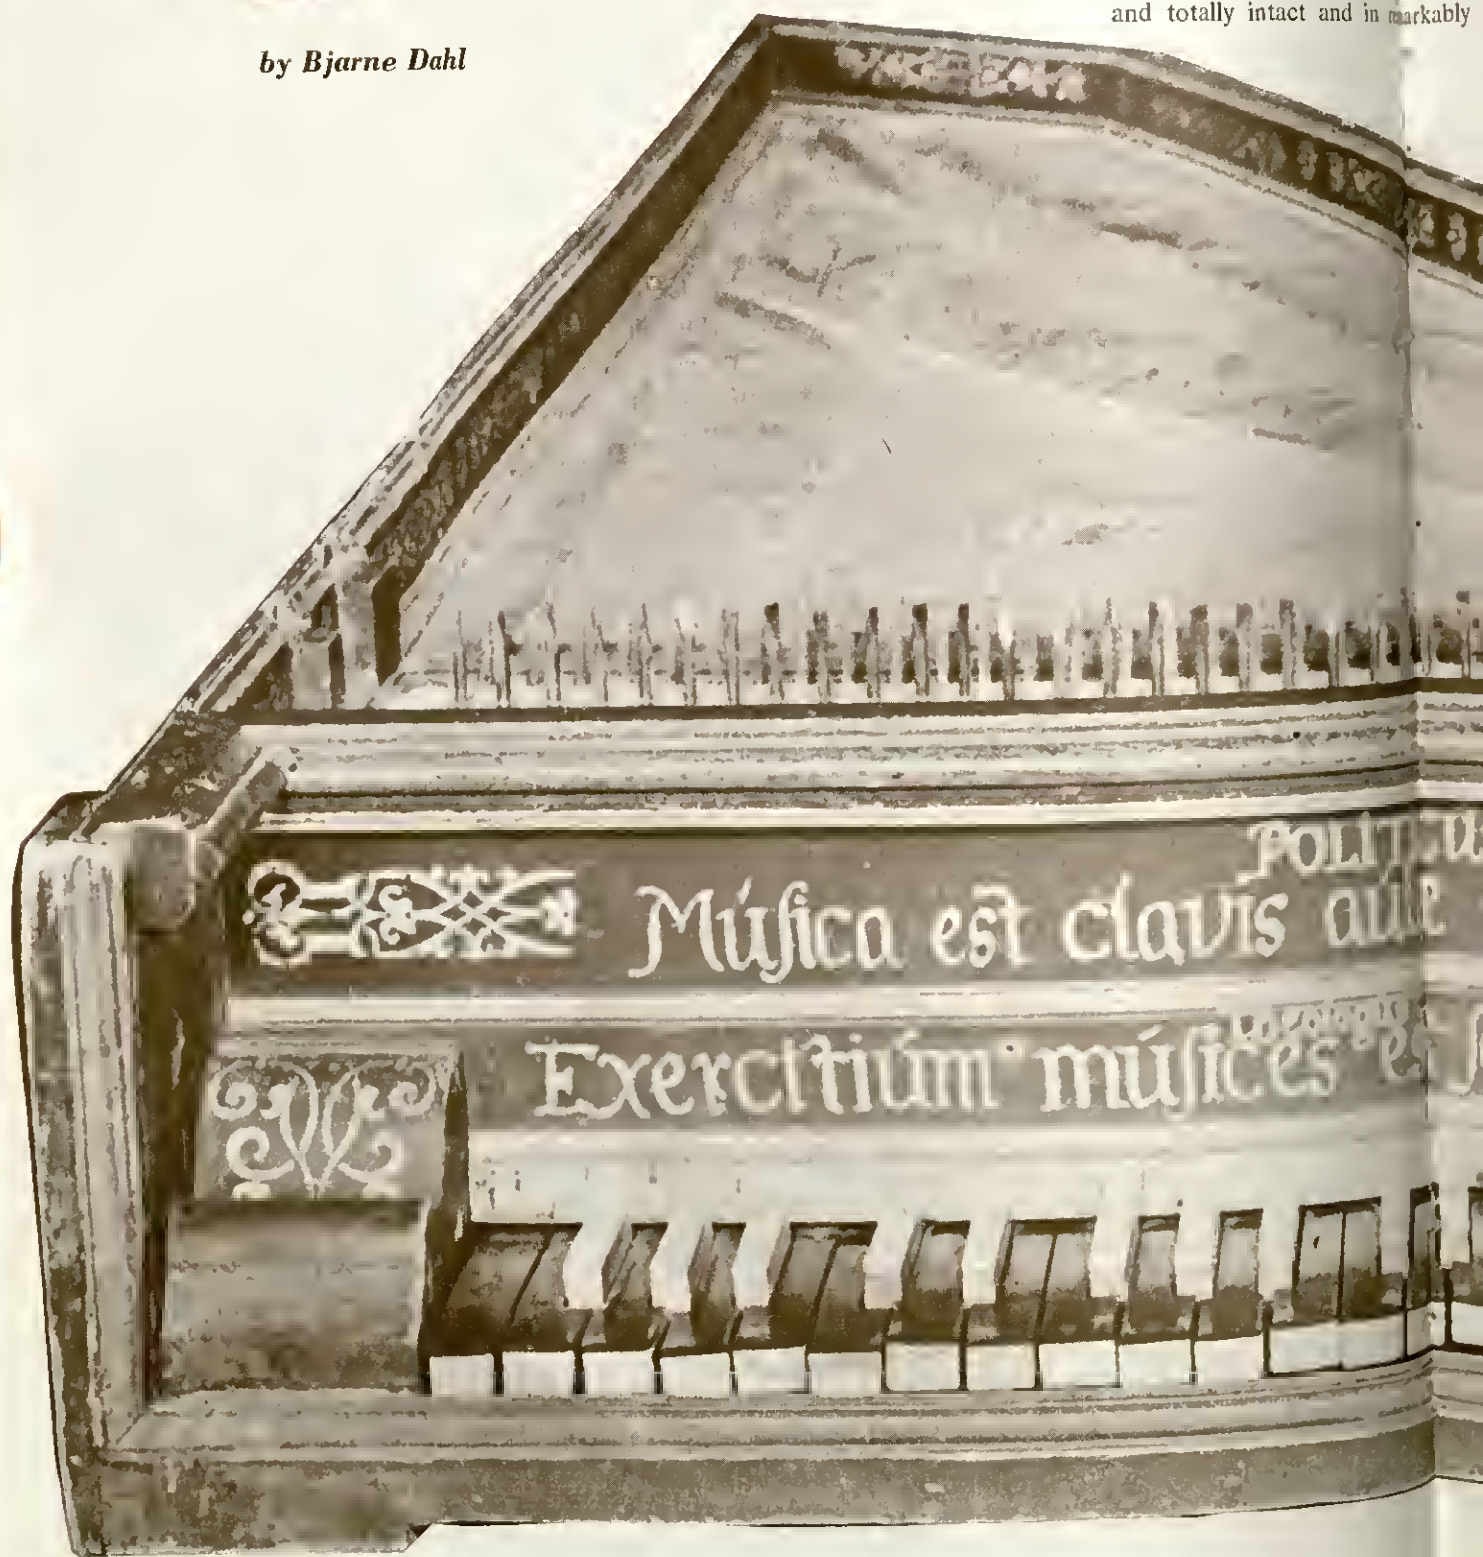 and totally intact and in markably
by Bjarne Dahl
Múſica est clavis
Exercitiúm múſices